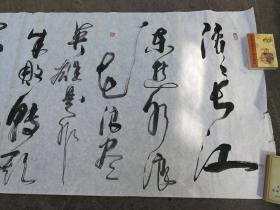 滚滚长江
东逝水浪
花淘尽
英雄是非
成败转头